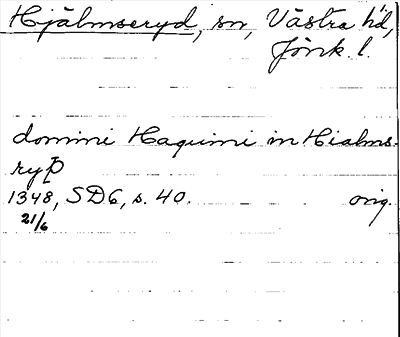 Hjälmseryd, sn, Västra hd,
Jönk. l.
domini Haquini in Hialms-
ryþ
1348, SD6, s. 40. orig.
21/6